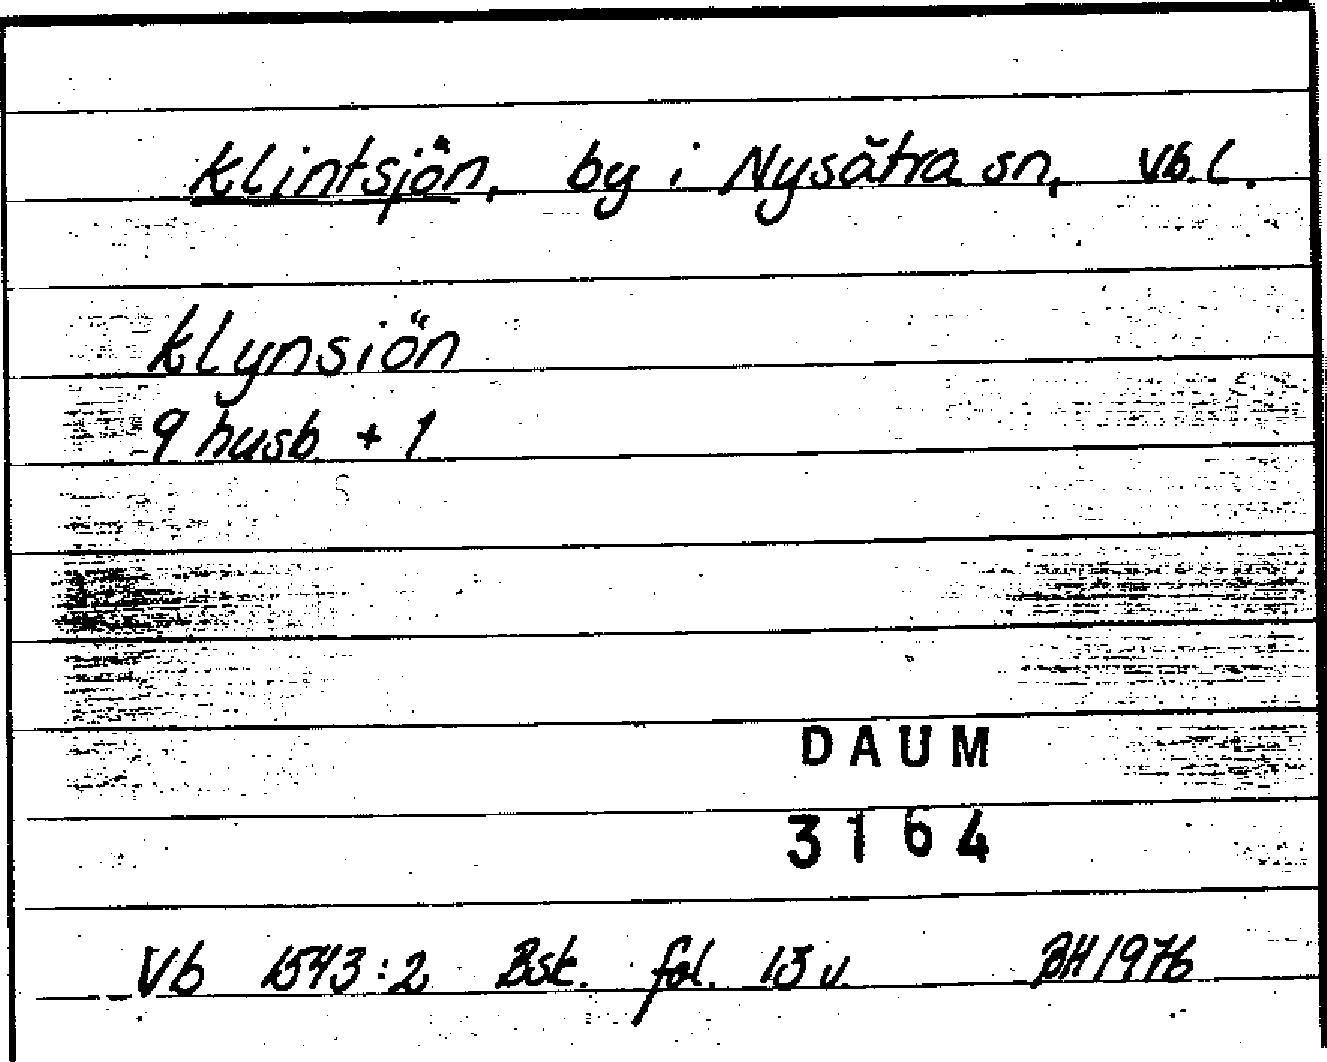 Klintsjön, by i Nysätra sn, Vb.l.
Klynsiön
9 husb + 1
DAUM
3164
Vb 1543:2 Bsk. fol. 13 v. BH 1976